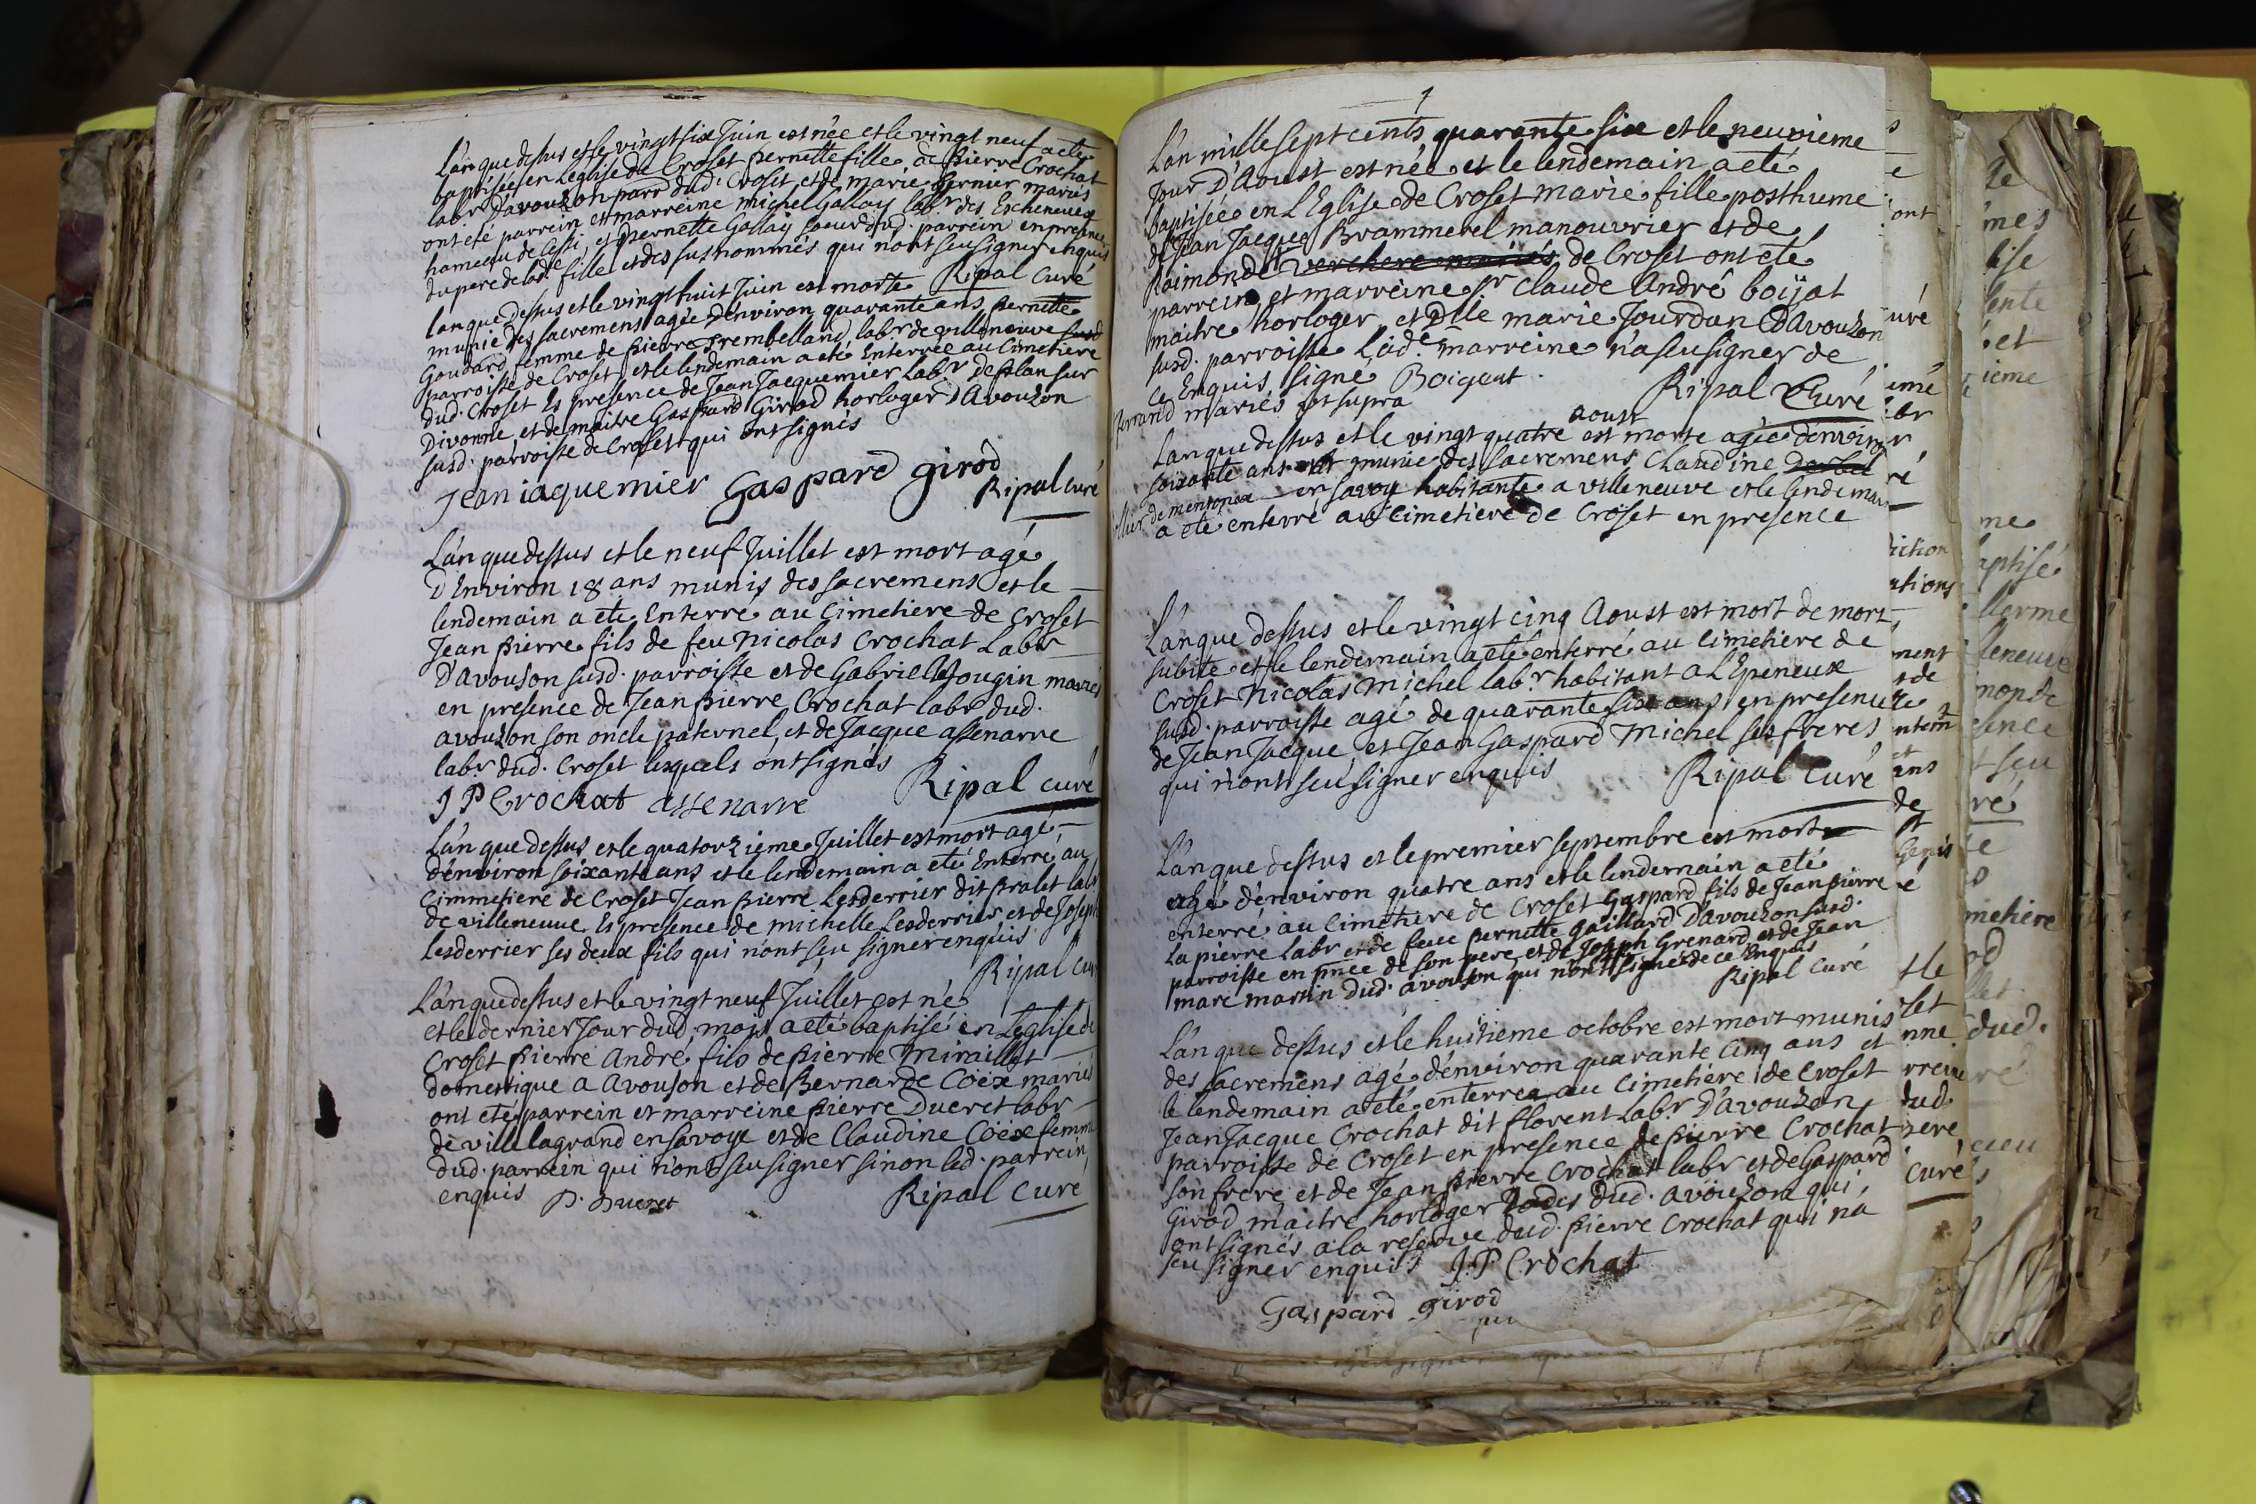 L'an que dessus et le vingt six Juin est née et le vingt neuf a eté
baptisée en L'eglise de Croset pernette fille de pierre Crochat
labr D'avouzon parr dud. Croset et de marie Bernier mariés
ont eté parrein et marreine michel Gallay labr des Escheneuex
hameau de Cessi, et pernette Gallay soeur dud. parrein en presence
du pere de lad.e fille et des susnommés qui n'ont seu signer enquis
Ripal Curé
lan que dessus et le vingt huit Juin est morte
munie des sacremens agée d'environ quarante ans pernette
Goudard femme de pierre Trembelland labr de villeneuve susd
parroisse de Croset et le lendemain a eté Enterrée au Cimetiere
dud. Croset En presence de Jean Jacquemier Labr De plan sur
Divonne et de maitre Gaspard Girod horloger D'Avouzon
susd. parroisse de Croset qui ont signés
Jean iaquemier Gaspard girod
Ripal curé
L'an que dessus et le neuf Juillet est mort agé
D'Environ 18 ans munis des sacremens et le
lendemain a eté Enterré au Cimetiere de Croset
Jean pierre fils de feu Nicolas Crochat Labr
D'avouson susd. parroisse et de Gabrielle Gougin mariés
en presence de Jean pierre Crochat labr dud.
avouzon son oncle paternel, et de Jacque assenarre
labr dud. Croset lesquels ont signés
Ripal curé
J P Crochat assenarre
L'an que dessus et le quatorzieme Juillet est mort agé
d'environ soixante ans et le lendemain a eté Enterré au
Cimmetiere de Croset Jean pierre Lesderrier dit pralet labr
de villeneuve En presence de michelle Lesderrier et de Joseph
Lesderrier ses deux fils qui n'ont seu signer enquis
Ripal cur
L'an que dessus et le vingt neuf Juillet est né
et le dernier Jour dud. mois a eté baptisé en L'eglise de
Croset pierre André fils de pierre miraillet
domestique a Avouson et de Bernarde Coëx mariés
ont eté parrein et marreine pierre Ducret labr
de ville la grand en savoye et de Claudine Coëx femme
dud. parrein qui n'ont seu signer sinon led. parrein
enquis P. Ducret
Ripal curé
1
L'an mille sept cents quarante six et le neuvieme
Jour D'Aoust est née et le lendemain a eté
baptisée en L'Eglise de Croset marie fille posthume
de Jean Jacques Brammerel manouvrier et de
Raimonde verchere mariés de Croset ont eté
parrein et marreine Sr Claude André boijat
maitre horloger et Dlle marie Jourdan D'Avouzon
susd. parroisse Lad.e marreine n'a seu signer de
ce Enquis signé Boigeat.
ferrand mariés ut supra
Ripal Curé
L'an que dessus et le vingt quatre aoust est morte agée d'environ
soixante ans munie des sacremens Claudine
de mentonex en savoy habitante a villeneuve et le lendemain
a eté enterré au Cimetiere de Croset en presence
L'an que dessus et le vingt cinq Aoust est mort de mort
subite et le lendemain a eté enterré au Cimetiere de
Croset Nicolas Michel labr habitant a L'Epeneux
susd. parroisse agé de quarante six ans en presence
de Jean Jacque, et Jean Gaspard Michel ses freres
qui n'ont seu signer enquis
Ripal Curé
L'an que dessus et le premier septembre est mort
agé d'environ quatre ans et le lendemain a eté
enterré au Cimetiere de Croset Gaspard fils de Jean pierre
La pierre Labr et de feue pernette Gaillard D'avouzon susd.
parroisse en pnce de son pere et de Joseph Grenard et de Jean
marc martin dud. avouson qui n'ont signés de ce Enquis
Ripal Curé
L'an que dessus et le huitieme octobre est mort munis
des sacremens agé d'environ quarante cinq ans et
le lendemain a eté enterrea au Cimetiere de Croset
Jean Jacque Crochat dit florent Labr D'avouzon
parroisse de Croset en presence de pierre Crochat
son frere et de Jean pierre Crochat labr et de Gaspard
Girod maitre horloger dud. avouzon qui
ont signés a la reserve dud. pierre Crochat qui n'a
seu signer enquis J.P Crochat
Gaspard girod